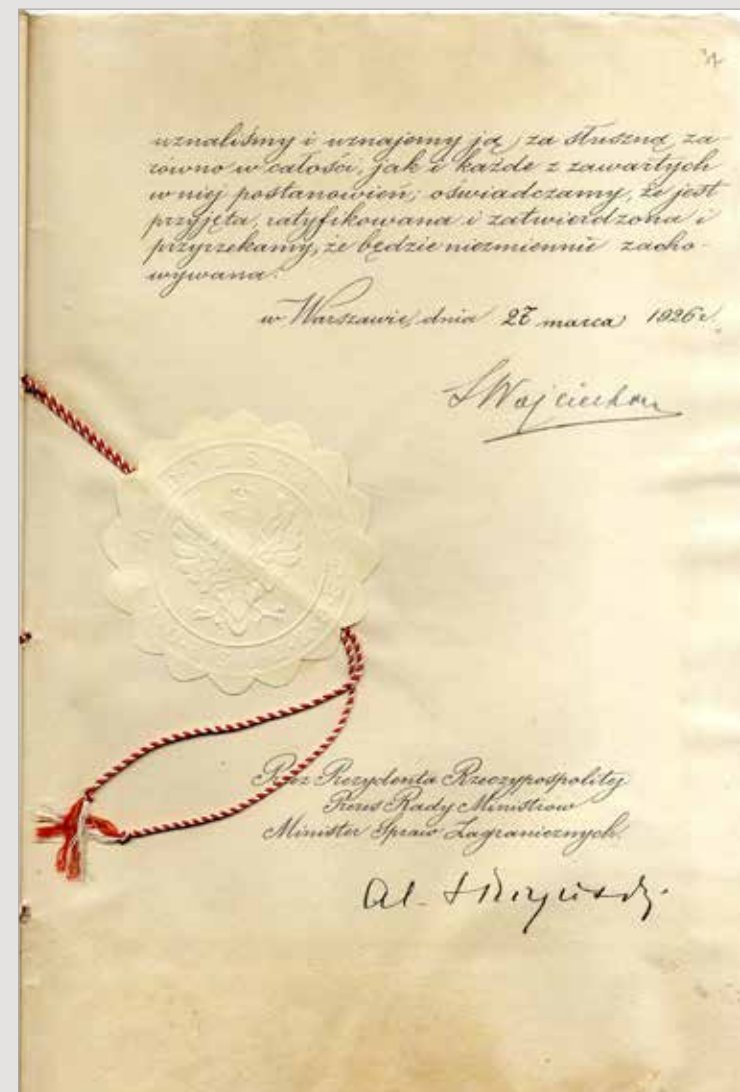 uznaliśmy i uznajemy ją za słuszną za-
równo w całości, jak i każde z zawartych
w niej postanowień; oświadczamy, że jest
przyjęta, ratyfikowana i zatwierdzona i
przyrzekamy, że będzie niezmiennie zacho-
wywana.
w Warszawie, dnia 27 marca 1926 r.
S Wojciechow
Przez Prezydenta Rzeczypospolitej
Prezes Rady Ministrów
Minister Spraw Zagranicznych.
Al. Skrzyński